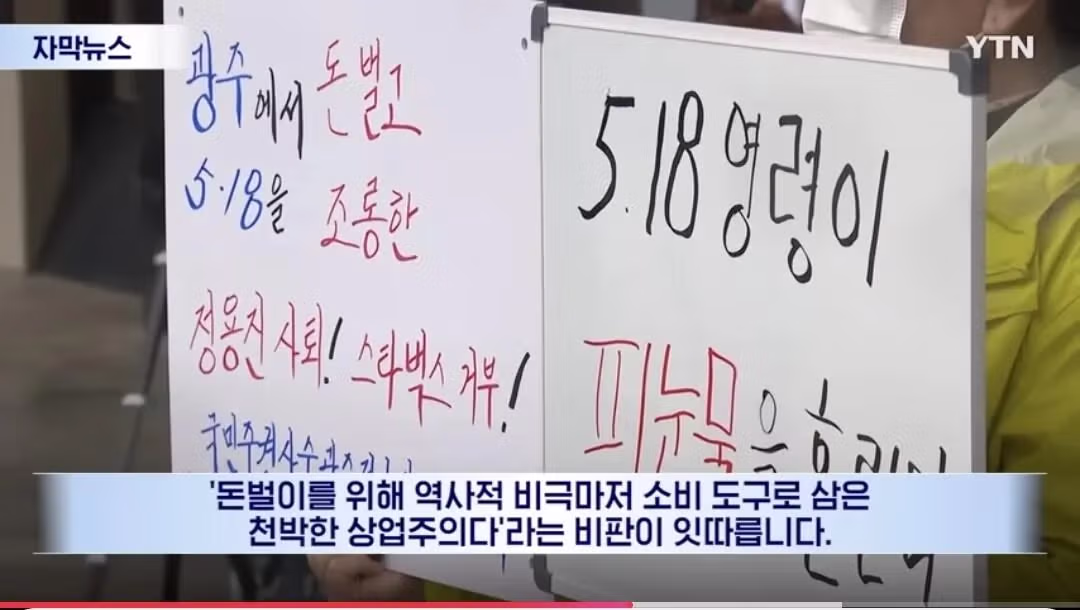 자막뉴스
YTN
광주에서 돈벌고
5·18을 조롱한
정용진 사퇴! 스타벅스 거부!
5.18영령이
피눈물을
'돈벌이를 위해 역사적 비극마저 소비 도구로 삼은
천박한 상업주의다'라는 비판이 잇따릅니다.